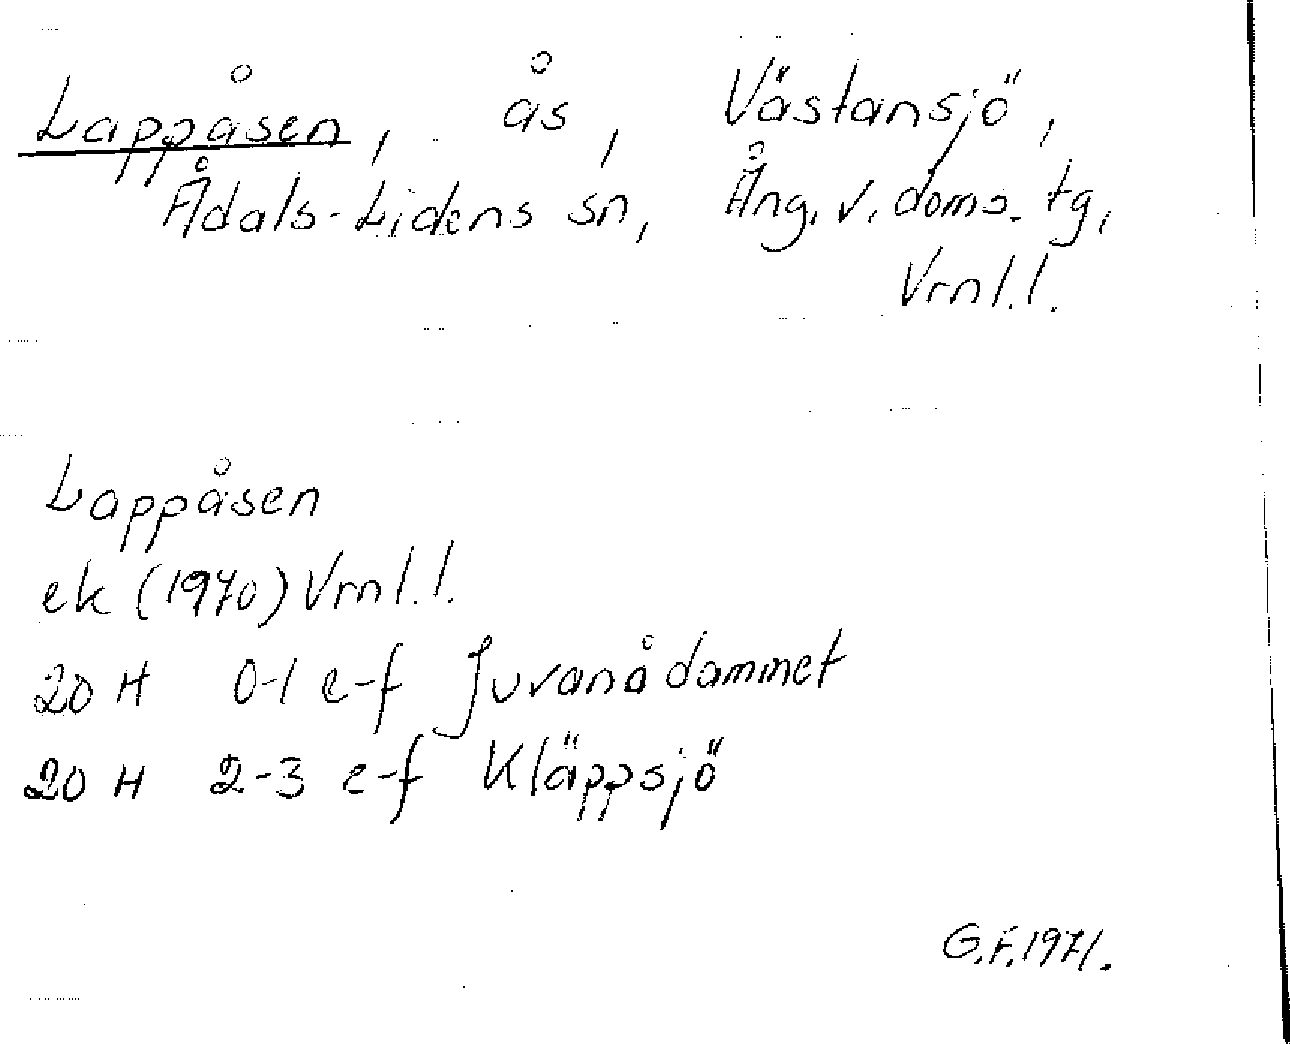 Lappåsen, ås, Västansjö,
Ådals-Lidens sn, Ång. v. doms. tg,
Vrnl. l.
Lappåsen
ek (1970) Vrnl. l.
20 H 0-1 e-f Juvanådammet
20 H 2-3 e-f Kläppsjö
G.F. 1971.